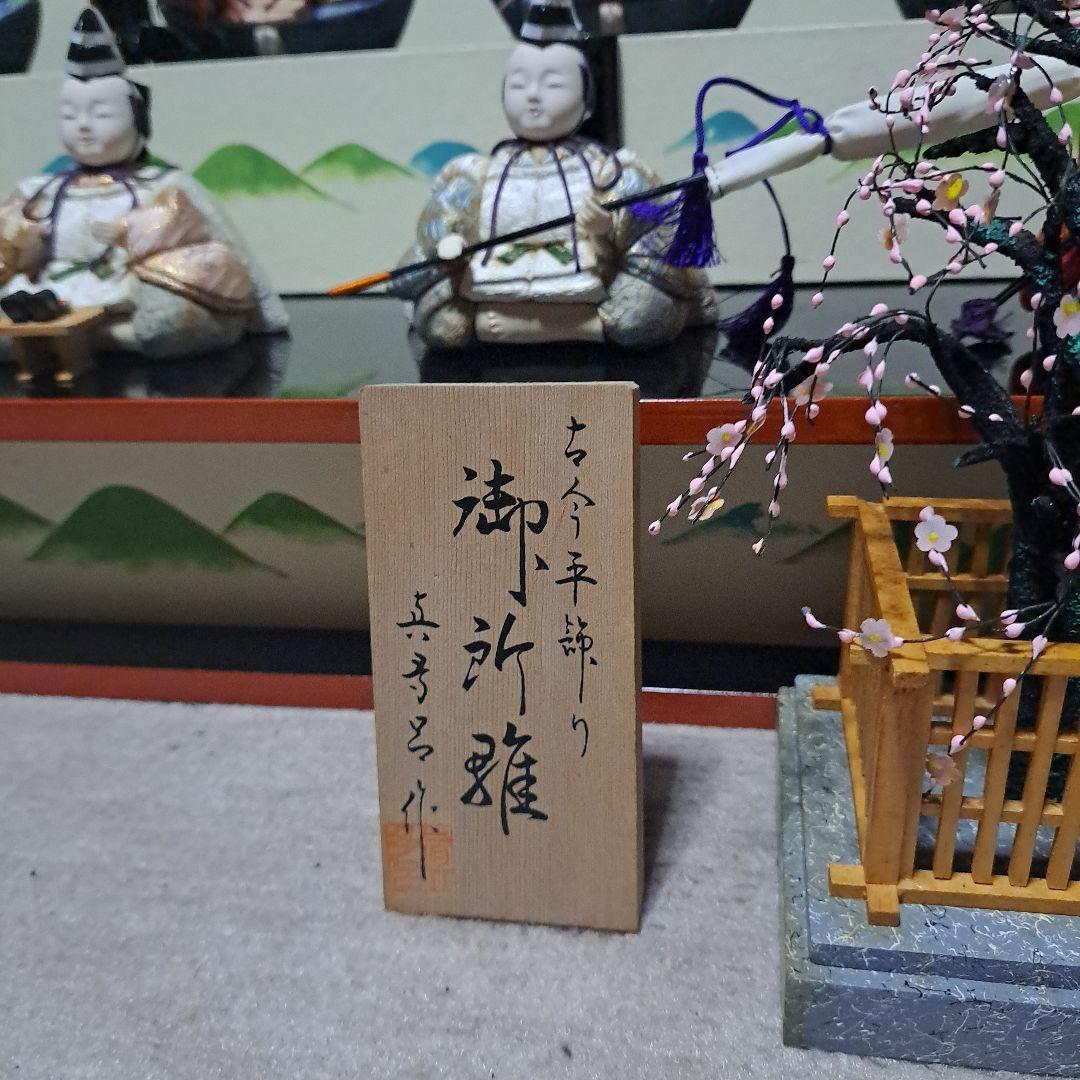 古今平飾り
御所雛
真寿呂作